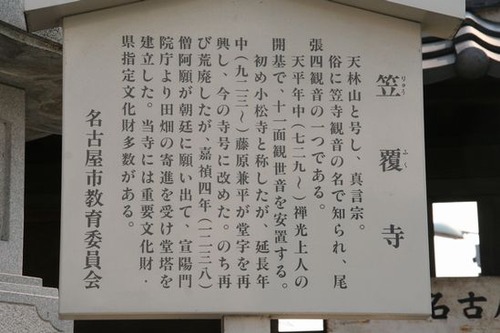 笠覆寺
りゅう ふく じ
天林山と号し、真言宗。
俗に笠寺観音の名で知られ、尾
張四観音の一つである。
天平年中(七二九〜)禅光上人の
開基で、十一面観世音を安置する。
初め小松寺と称したが、延長年
中(九二三〜)藤原兼平が堂宇を再
興し、今の寺号に改めた。のち再
び荒廃したが、嘉禎四年(一二三八)
僧阿願が朝廷に願い出て、宣陽門
院庁より田畑の寄進を受け堂塔を
建立した。当寺には重要文化財・
県指定文化財多数がある。
名古屋市教育委員会
名古